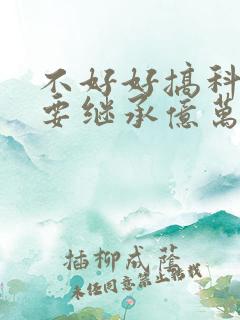 不好好搞科
要继承億萬
插柳成蔭
未经同意禁止转载